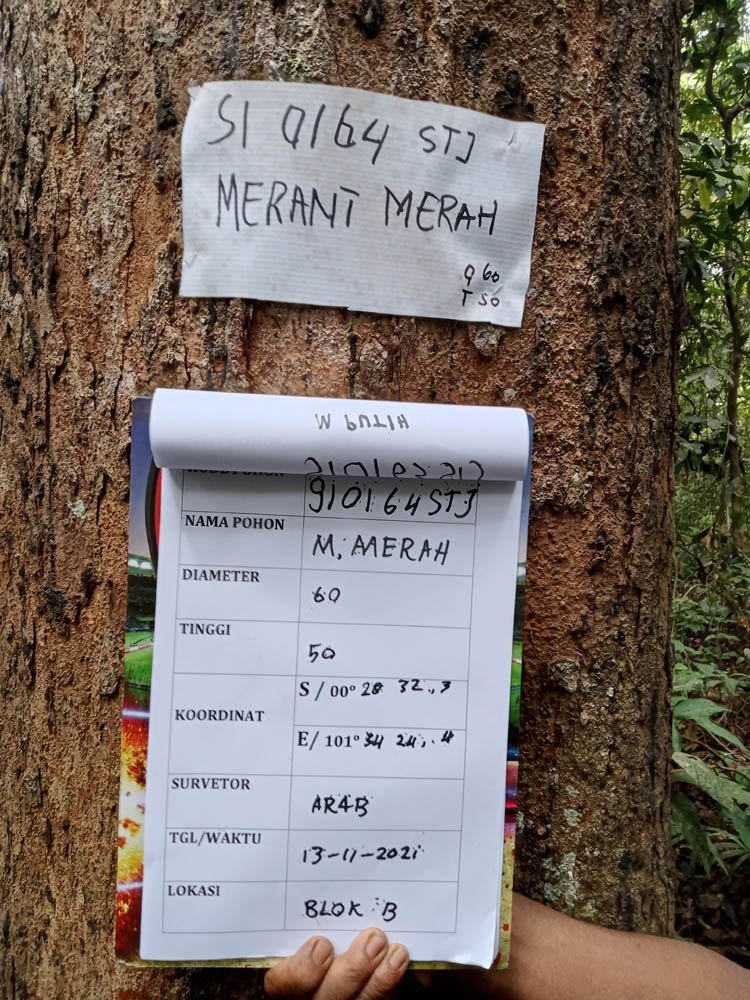 SI 0164 STJ
MERANT MERAH
Q 60
T 50
W PUTIH
910164 STJ
NAMA POHON M. MERAH
DIAMETER 60
TINGGI 50
KOORDINAT S / 00° 28 32,,3
E/ 101° 34 24,,4
SURVETOR ARAB
TGL/WAKTU 13-11-2021
LOKASI BLOK B